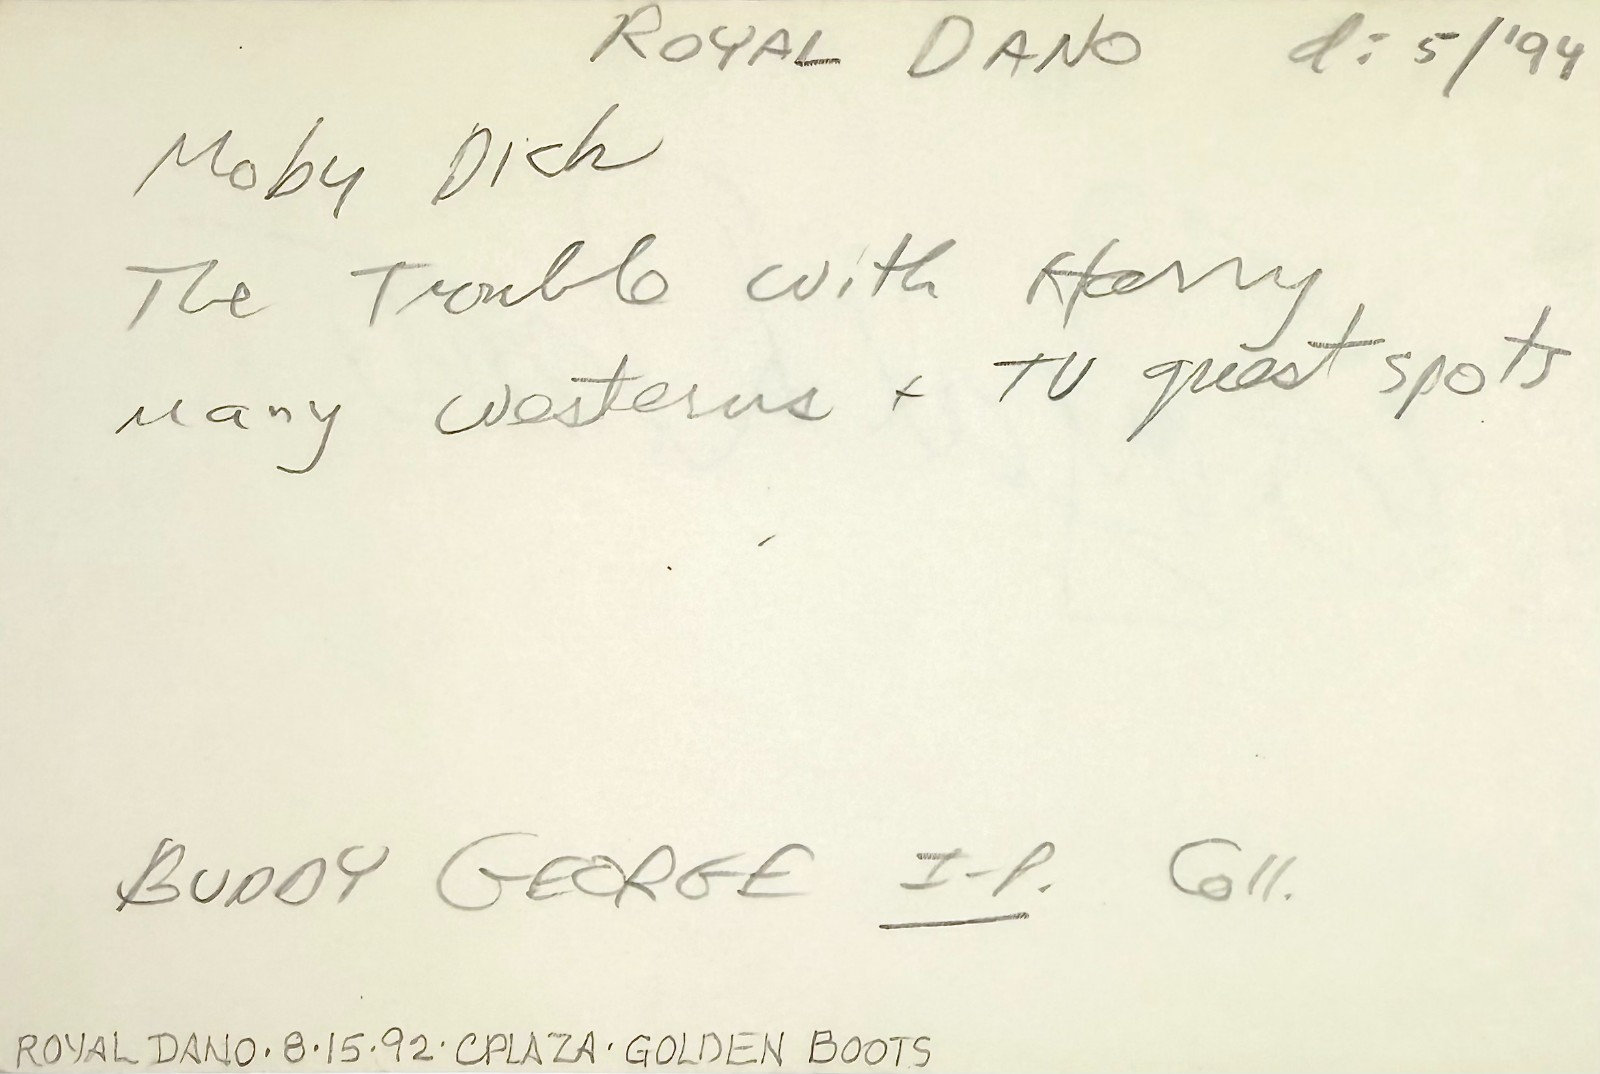 ROYAL DANO d: 5/'94
Moby Dick
The Trouble with Harry
Many westerns + TV guest spots
BUDDY GEORGE I-P. Coll.
ROYAL DANO · 8·15·92 · CPLAZA · GOLDEN BOOTS